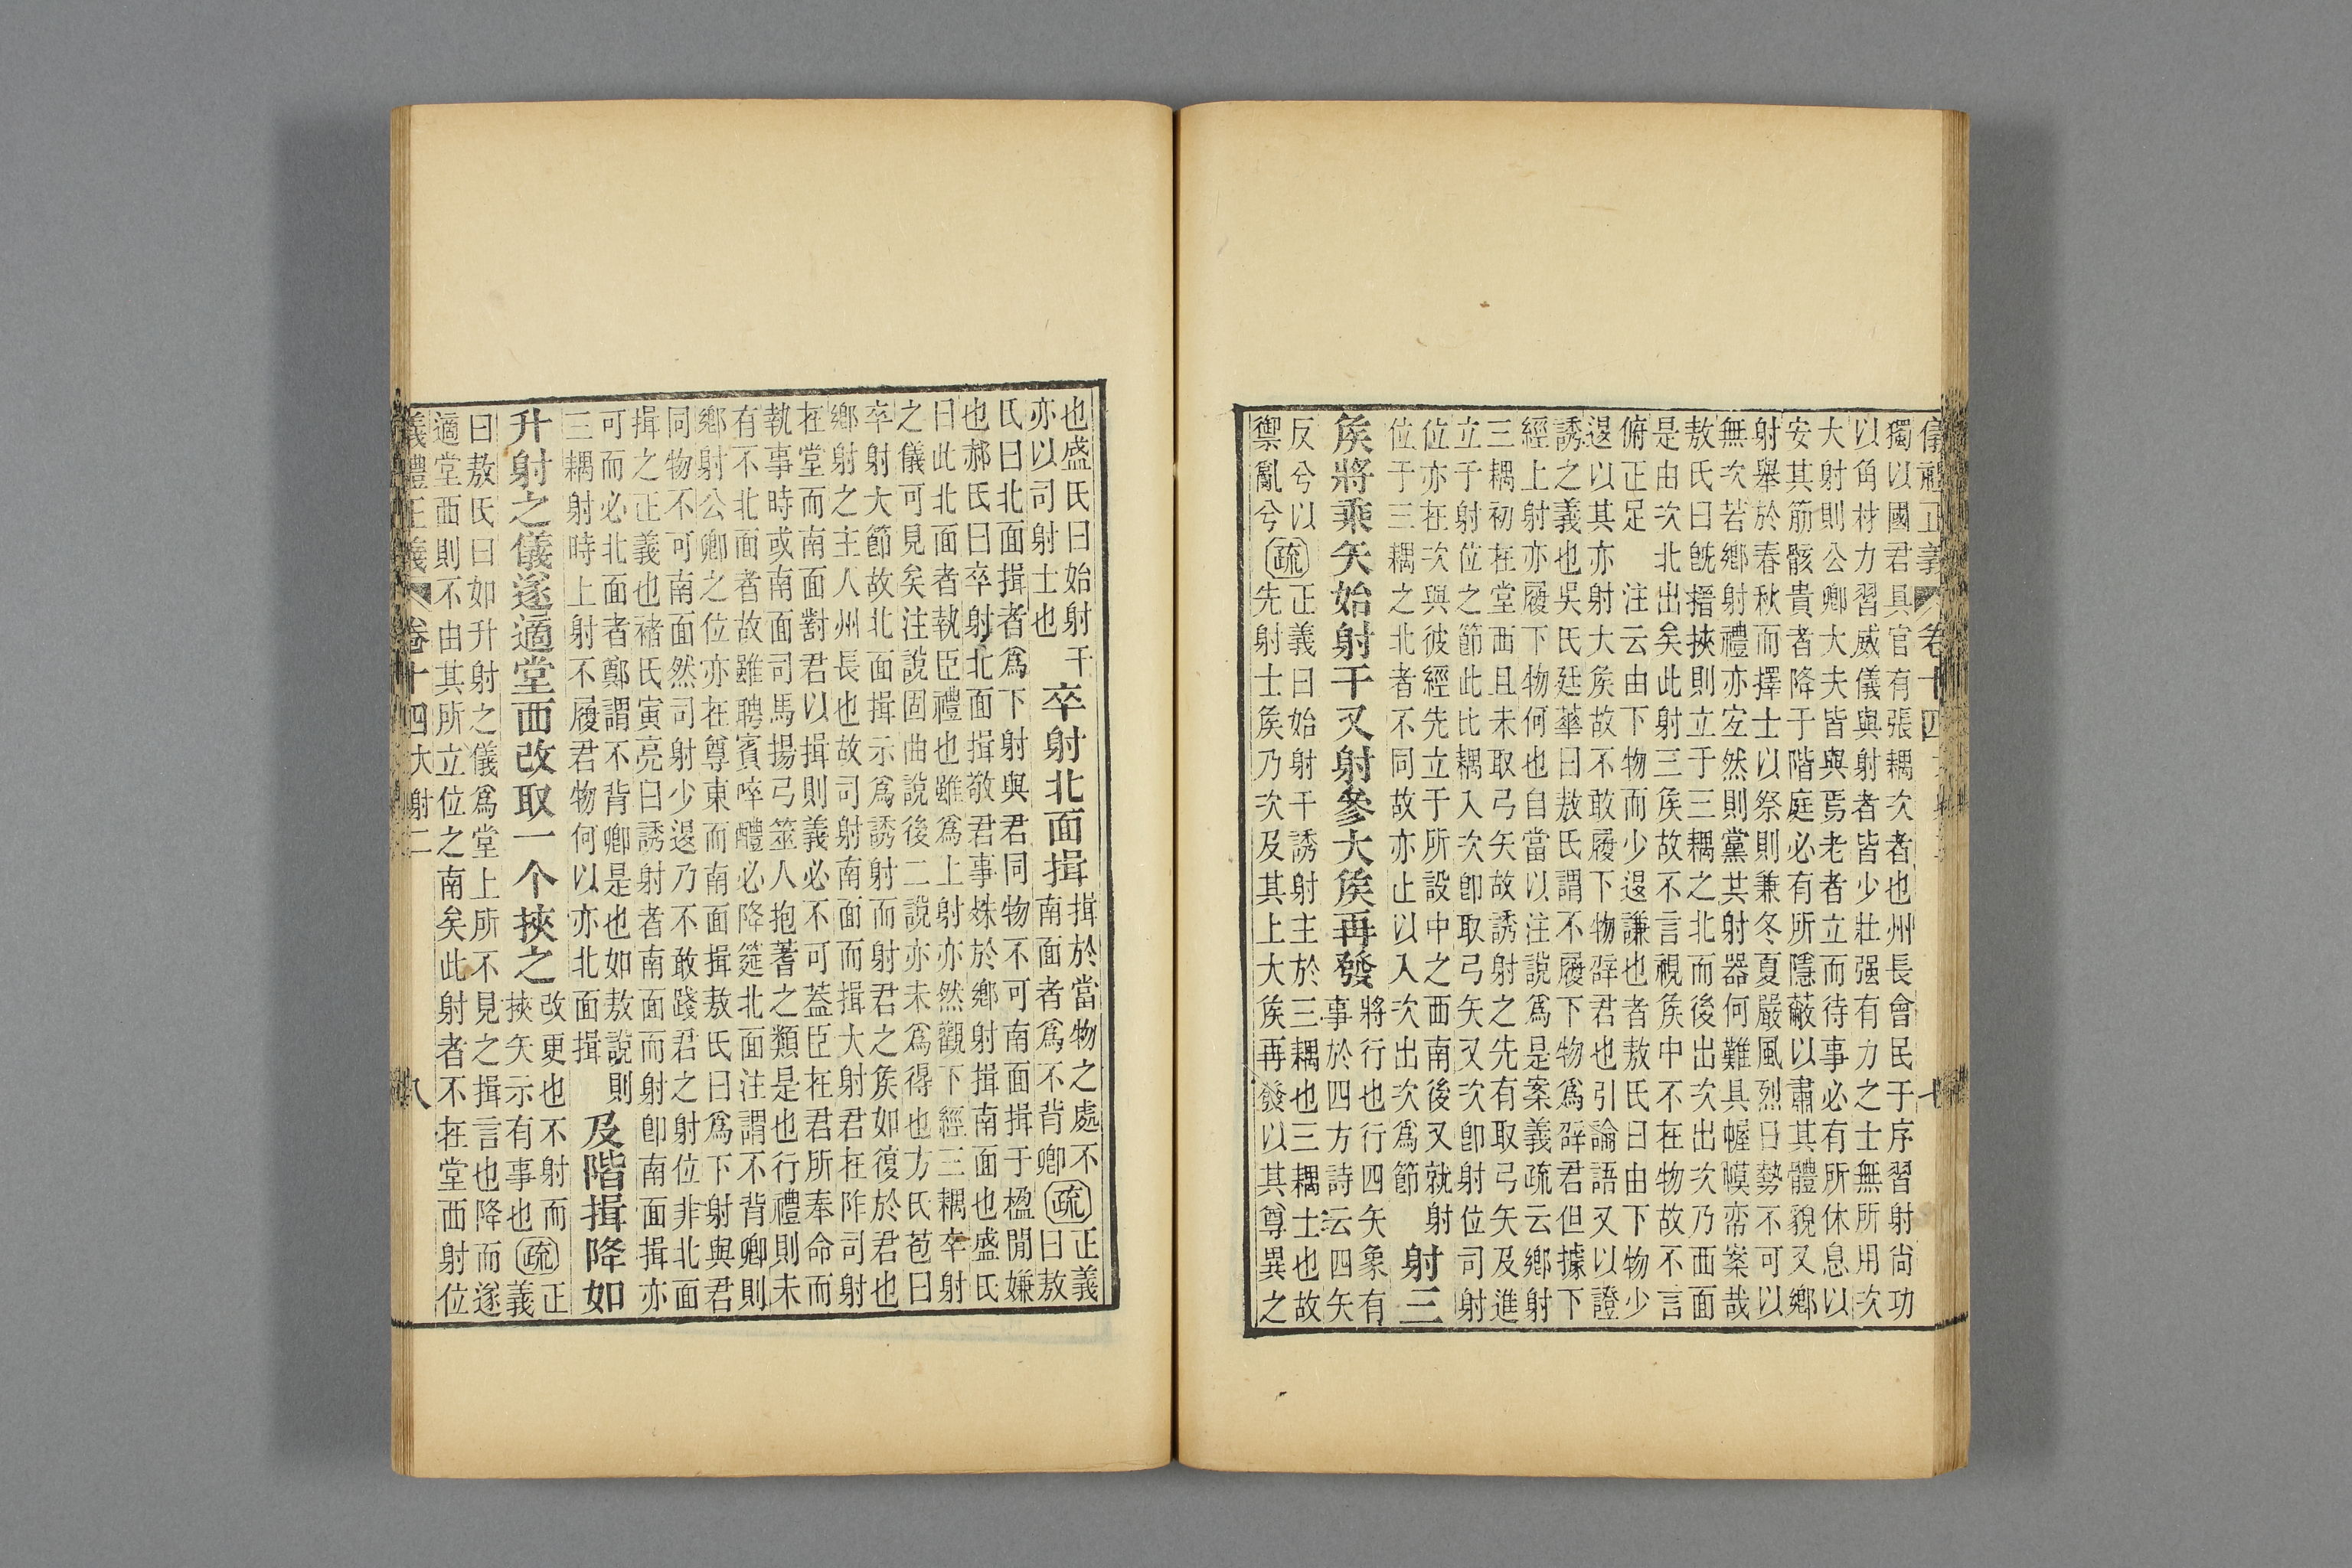 儀禮正義　卷十四　七
獨以國君具官有張耦次者也州長會民于序習射尚功
以角材力習威儀與射者皆少壯强有力之士無所用次
大射則公卿大夫皆與焉老者立而待事必有所休息以
安其筋骸貴者降于階庭必有所隱蔽以肅其體貌又鄉
射舉於春秋而擇士以祭則兼冬夏嚴風烈日勢不可以
無次若鄉射禮亦宐然則黨其射器何難具幄幙帟案哉
敖氏曰旣搢挾則立于三耦之北而後出次出次乃西面
是由次北出矣此射三矦故不言視矦中不在物故不言
俯正足　注云由下物而少退謙也者敖氏曰由下物少
退以其亦射大矦故不敢履下物辟君也引論語又以證
誘之義也吳氏廷華曰敖氏謂不履下物爲辟君但據下
經上射亦履下物何也自當以注說爲是案義疏云鄉射
三耦初在堂西且未取弓矢故誘射之先有取弓矢及進
立于射位之節此比耦入次卽取弓矢又次卽射位司射
位亦在次與彼經先立于所設中之西南後又就射
位于三耦之北者不同故亦止以入次出次爲節
射三
矦將乘矢始射干又射參大矦再發
將行也行四矢象有
事於四方詩云四矢
反兮以
禦亂兮
疏
正義曰始射干誘射主於三耦也三耦士也故
先射士矦乃次及其上大矦再發以其尊異之
也盛氏曰始射干
亦以司射士也
卒射北面揖
揖於當物之處不
南面者爲不背卿
疏
正義
曰敖
氏曰北面揖者爲下射與君同物不可南面揖于楹閒嫌
也郝氏曰卒射北面揖敬君事姝於鄉射揖南面也盛氏
曰此北面者執臣禮也雖爲上射亦然觀下經三耦卒射
之儀可見矣注說固曲說後二說亦未爲得也方氏苞曰
卒射大節故北面揖示爲誘射而射君之矦如復於君也
鄉射之主人州長也故司射南面而揖大射君在阼司射
在堂而南面對君以揖則義必不可蓋臣在君所奉命而
執事時或南面司馬揚弓筮人抱蓍之類是也行禮則未
有不北面者故雖聘賓啐醴必降筵北面注謂不背卿則
鄉射公卿之位亦在尊東而南面揖敖氏曰爲下射與君
同物不可南面然司射少退乃不敢踐君之射位非北面
揖之正義也褚氏寅亮曰誘射者南面而射卽南面揖亦
可而必北面者鄭謂不背卿是也如敖說則
三耦射時上射不履君物何以亦北面揖
及階揖降如
升射之儀遂適堂西改取一个挾之
改更也不射而
挾矢示有事也
疏
正
義
曰敖氏曰如升射之儀爲堂上所不見之揖言也降而遂
適堂西則不由其所立位之南矣此射者不在堂西射位
義禮正義　卷十四大射二　八